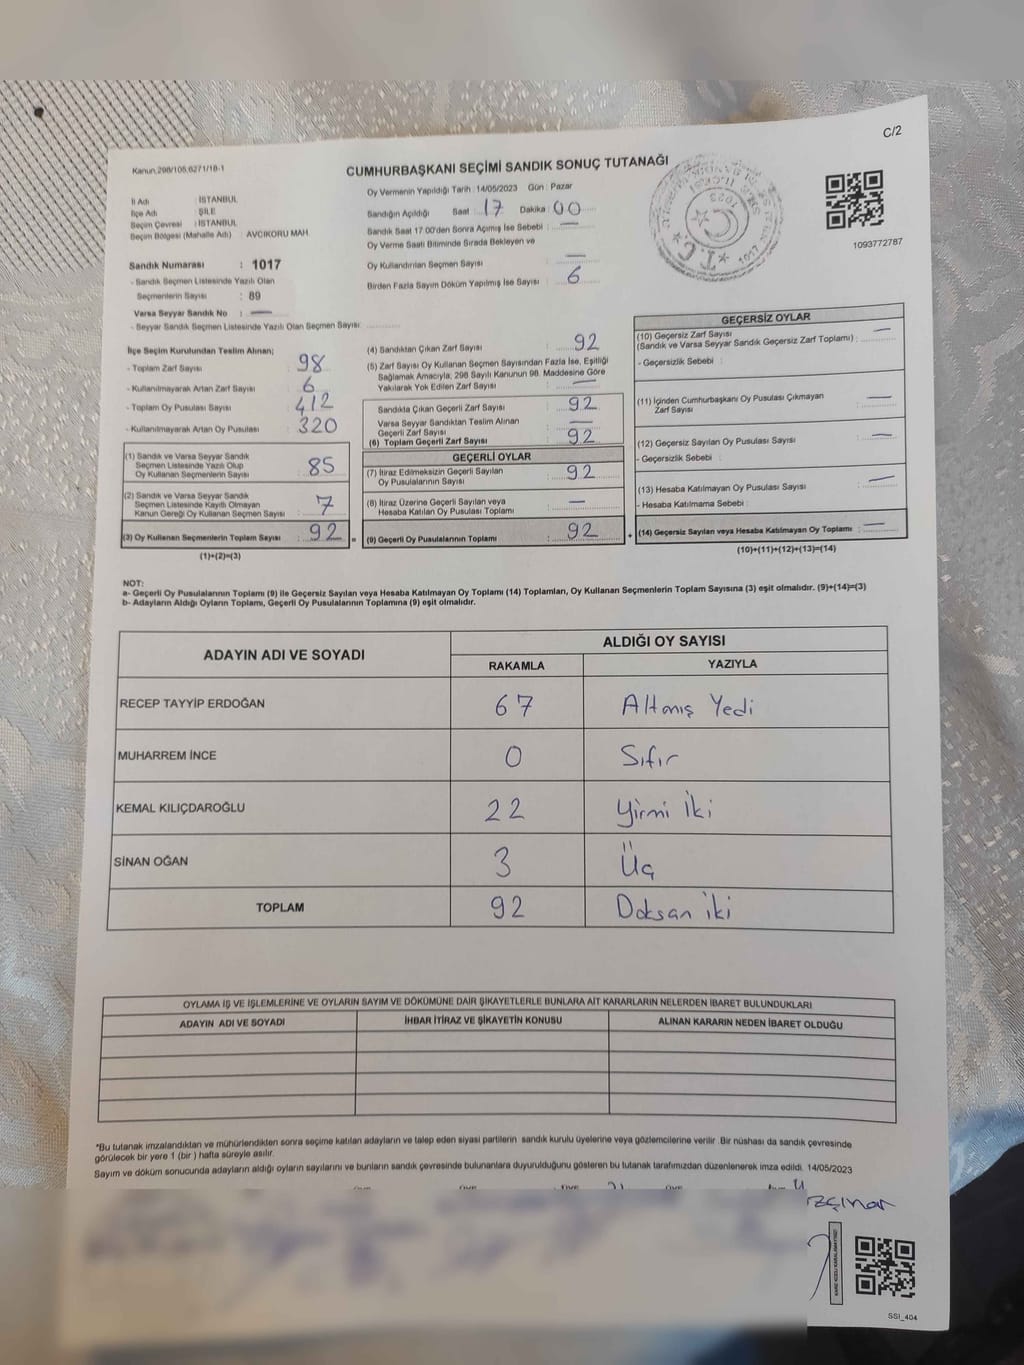 C/2
Kanun,298/105,6271/18-1
CUMHURBAŞKANI SEÇİMİ SANDIK SONUÇ TUTANAĞI
1093772787
İl Adı : İSTANBUL
İlçe Adı : ŞİLE
Seçim Çevresi : İSTANBUL
Seçim Bölgesi (Mahalle Adı) : AVCIKORU MAH.
Sandık Numarası : 1017
- Sandık Seçmen Listesinde Yazılı Olan
Seçmenlerin Sayısı : 89
Varsa Seyyar Sandık No : —
- Seyyar Sandık Seçmen Listesinde Yazılı Olan Seçmen Sayısı:
Oy Vermenin Yapıldığı Tarih : 14/05/2023 Gün : Pazar
Sandığın Açıldığı Saat : 17 Dakika : 00
Sandık Saat 17.00'den Sonra Açımış İse Sebebi : —
Oy Verme Saati Bitiminde Sırada Bekleyen ve
Oy Kullandırılan Seçmen Sayısı : —
Birden Fazla Sayım Döküm Yapılmış İse Sayısı : 6
İlçe Seçim Kurulundan Teslim Alınan;
- Toplam Zarf Sayısı : 98
- Kullanılmayarak Artan Zarf Sayısı : 6
- Toplam Oy Pusulası Sayısı : 412
- Kullanılmayarak Artan Oy Pusulası : 320
(1) Sandık ve Varsa Seyyar Sandık
Seçmen Listesinde Yazılı Olup
Oy Kullanan Seçmenlerin Sayısı : 85
(2) Sandık ve Varsa Seyyar Sandık
Seçmen Listesinde Kayıtlı Olmayan
Kanun Gereği Oy Kullanan Seçmen Sayısı : 7
(3) Oy Kullanan Seçmenlerin Toplam Sayısı : 92
(1)+(2)=(3)
(4) Sandıktan Çıkan Zarf Sayısı : 92
(5) Zarf Sayısı Oy Kullanan Seçmen Sayısından Fazla İse, Eşitliği
Sağlamak Amacıyla; 298 Sayılı Kanunun 98. Maddesine Göre
Yakılarak Yok Edilen Zarf Sayısı : —
Sandıkta Çıkan Geçerli Zarf Sayısı : 92
Varsa Seyyar Sandıktan Teslim Alınan
Geçerli Zarf Sayısı : —
(6) Toplam Geçerli Zarf Sayısı : 92
GEÇERLİ OYLAR
(7) İtiraz Edilmeksizin Geçerli Sayılan
Oy Pusulalarının Sayısı : 92
(8) İtiraz Üzerine Geçerli Sayılan veya
Hesaba Katılan Oy Pusulası Toplamı : —
(9) Geçerli Oy Pusulalarının Toplamı : 92
GEÇERSİZ OYLAR
(10) Geçersiz Zarf Sayısı
(Sandık ve Varsa Seyyar Sandık Geçersiz Zarf Toplamı) : —
- Geçersizlik Sebebi :
(11) İçinden Cumhurbaşkanı Oy Pusulası Çıkmayan
Zarf Sayısı : —
(12) Geçersiz Sayılan Oy Pusulası Sayısı : —
- Geçersizlik Sebebi :
(13) Hesaba Katılmayan Oy Pusulası Sayısı : —
- Hesaba Katılmama Sebebi :
(14) Geçersiz Sayılan veya Hesaba Katılmayan Oy Toplamı : —
(10)+(11)+(12)+(13)=(14)
NOT:
a- Geçerli Oy Pusulalarının Toplamı (9) ile Geçersiz Sayılan veya Hesaba Katılmayan Oy Toplamı (14) Toplamları, Oy Kullanan Seçmenlerin Toplam Sayısına (3) eşit olmalıdır. (9)+(14)=(3)
b- Adayların Aldığı Oyların Toplamı, Geçerli Oy Pusulalarının Toplamına (9) eşit olmalıdır.
ADAYIN ADI VE SOYADI
ALDIĞI OY SAYISI
RAKAMLA YAZIYLA
RECEP TAYYİP ERDOĞAN 67 Altmış Yedi
MUHARREM İNCE 0 Sıfır
KEMAL KILIÇDAROĞLU 22 Yirmi İki
SİNAN OĞAN 3 Üç
TOPLAM 92 Doksan iki
OYLAMA İŞ VE İŞLEMLERİNE VE OYLARIN SAYIM VE DÖKÜMÜNE DAİR ŞİKAYETLERLE BUNLARA AİT KARARLARIN NELERDEN İBARET BULUNDUKLARI
ADAYIN ADI VE SOYADI İHBAR İTİRAZ VE ŞİKAYETİN KONUSU ALINAN KARARIN NEDEN İBARET OLDUĞU
*Bu tutanak imzalandıktan ve mühürlendikten sonra seçime katılan adayların ve talep eden siyasi partilerin sandık kurulu üyelerine veya gözlemcilerine verilir. Bir nüshası da sandık çevresinde
görülecek bir yere 1 (bir) hafta süreyle asılır.
Sayım ve döküm sonucunda adayların aldığı oyların sayılarını ve bunların sandık çevresinde bulunanlara duyurulduğunu gösteren bu tutanak tarafımızdan düzenlenerek imza edildi. 14/05/2023
SSI_404